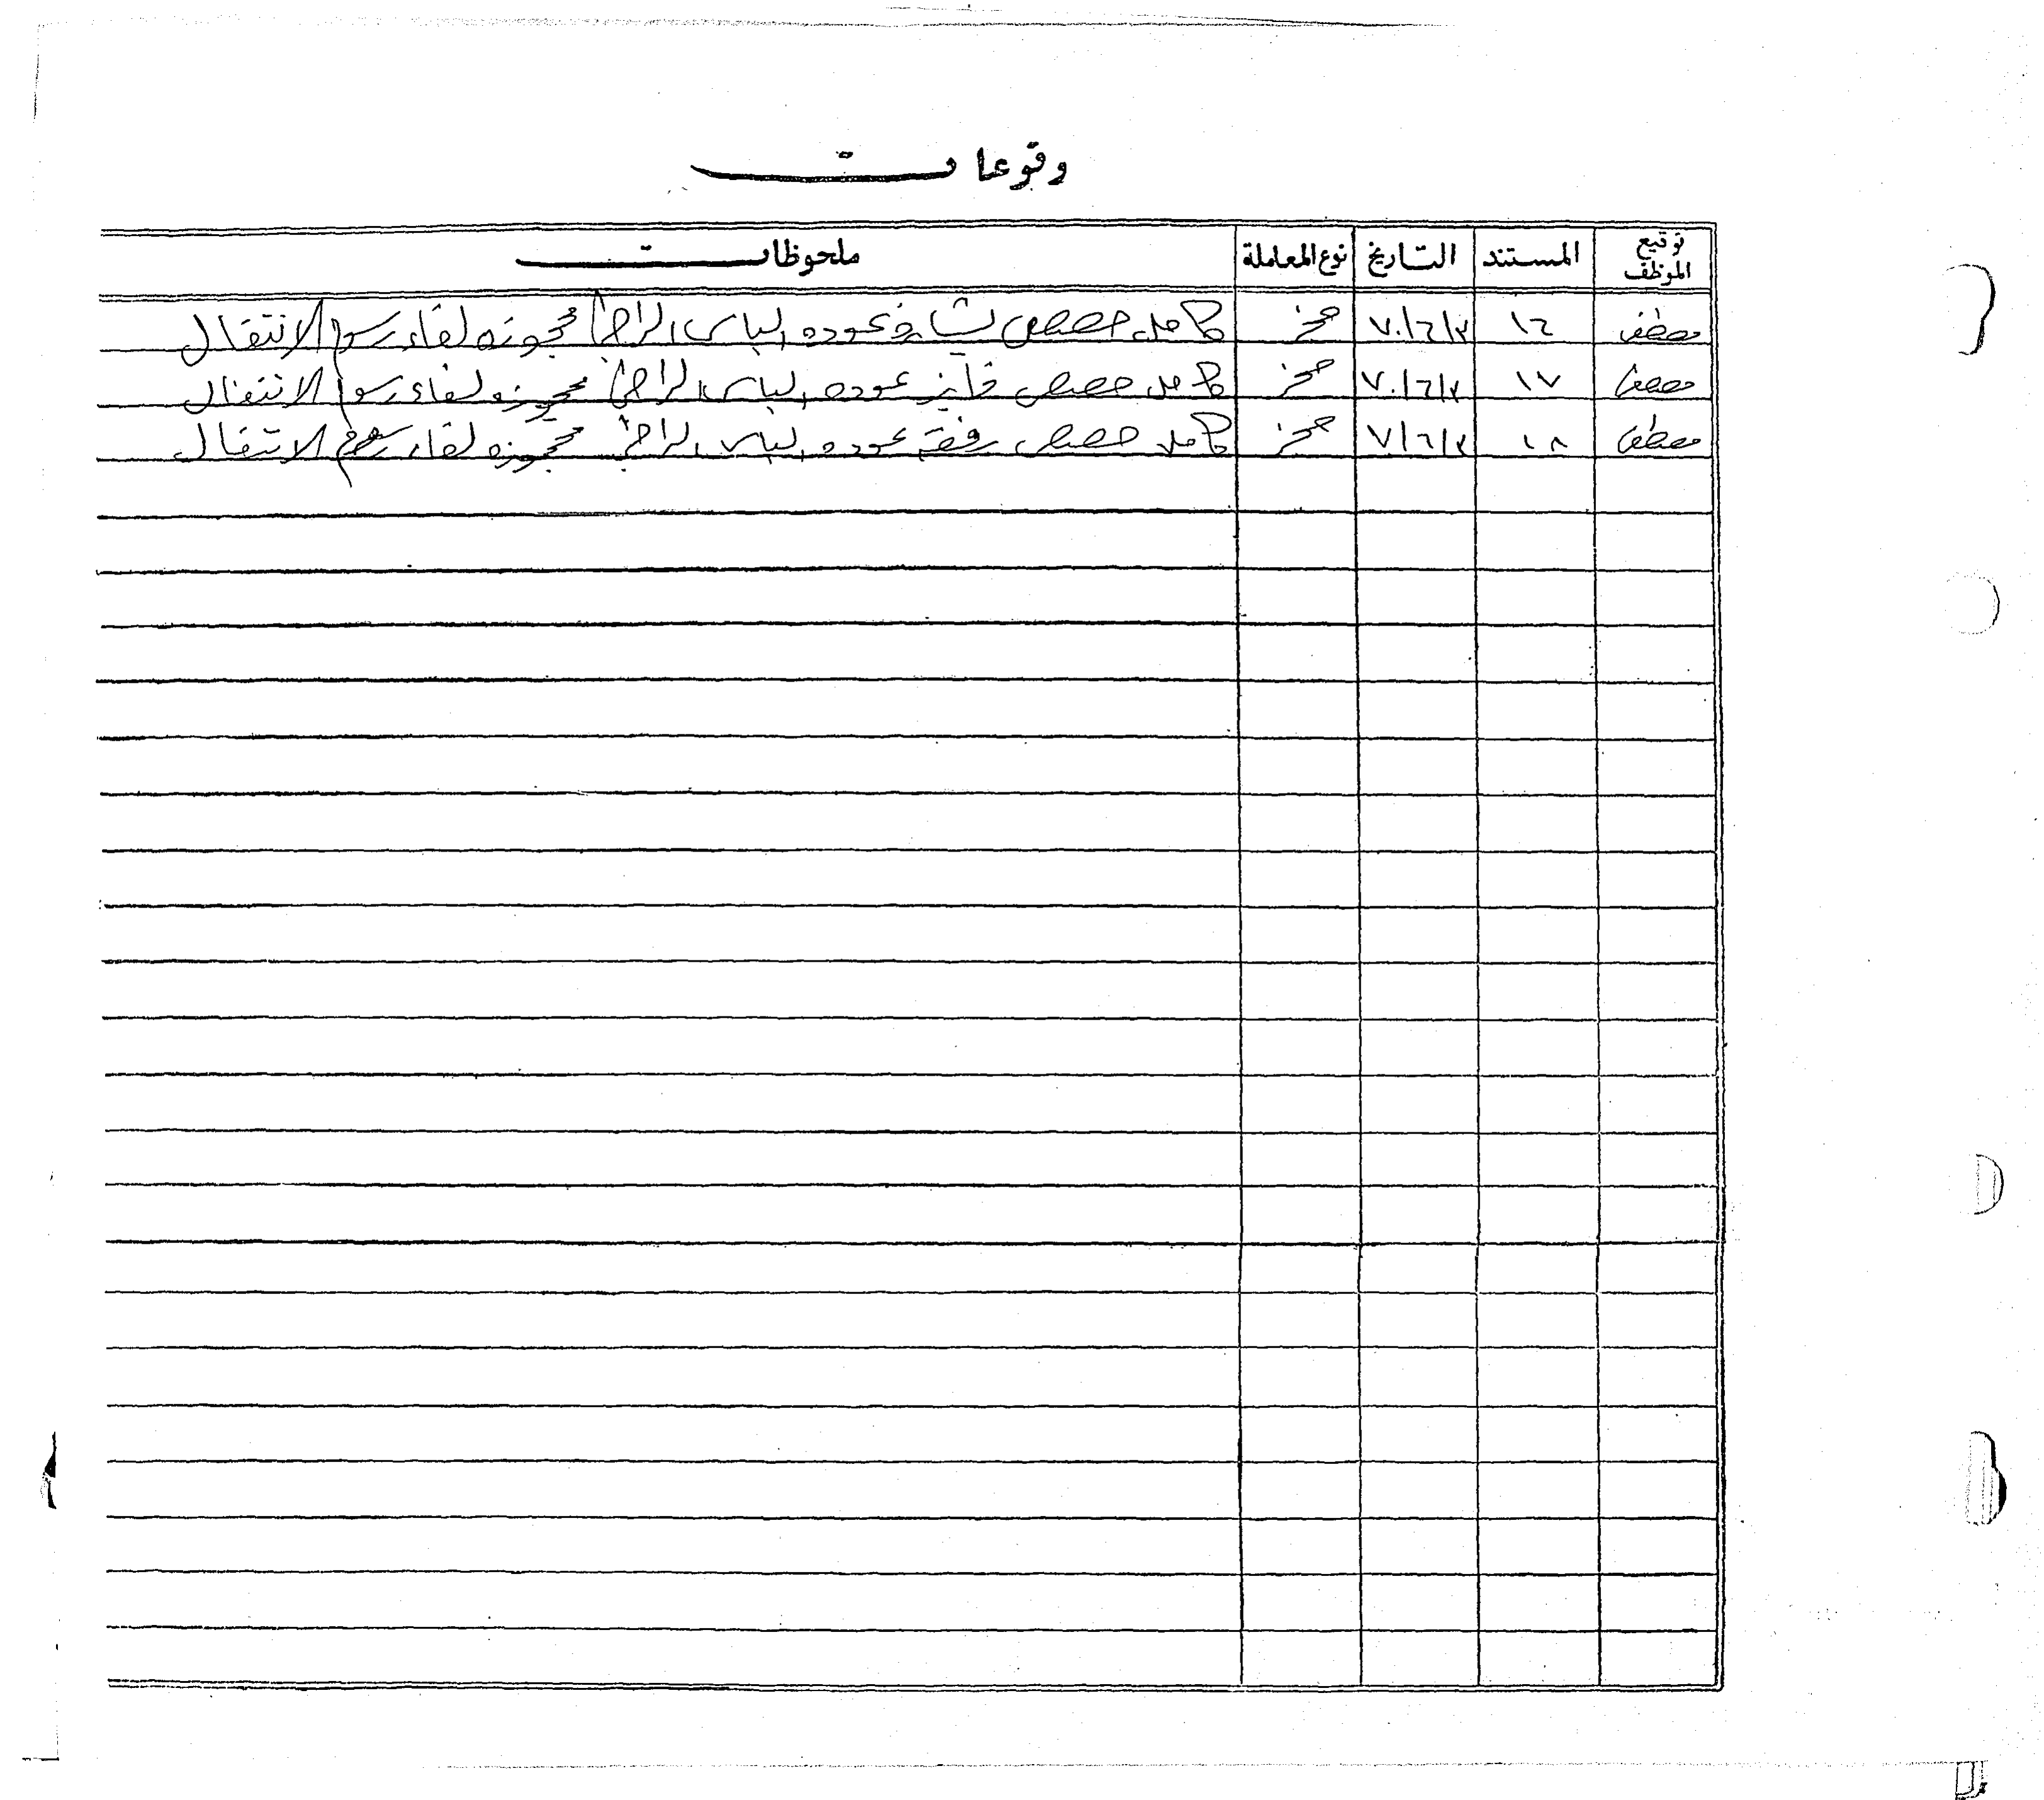 وقوعات
توقيع الموظف المستند التاريخ نوع المعاملة ملحوظات
مصطفى ١٦ ٧٠/٦/٢ حجز كامل حصص عوده الياس الراعي محجوزه لقاء رسوم الانتقال
مصطفى ١٧ ٧٠/٦/٢ حجز كامل حصص فايز عوده الياس الراعي محجوزه لقاء رسوم الانتقال
مصطفى ١٨ ٧/٦/٢ حجز كامل حصص رفقه عوده الياس الراعي محجوزه لقاء رسوم الانتقال